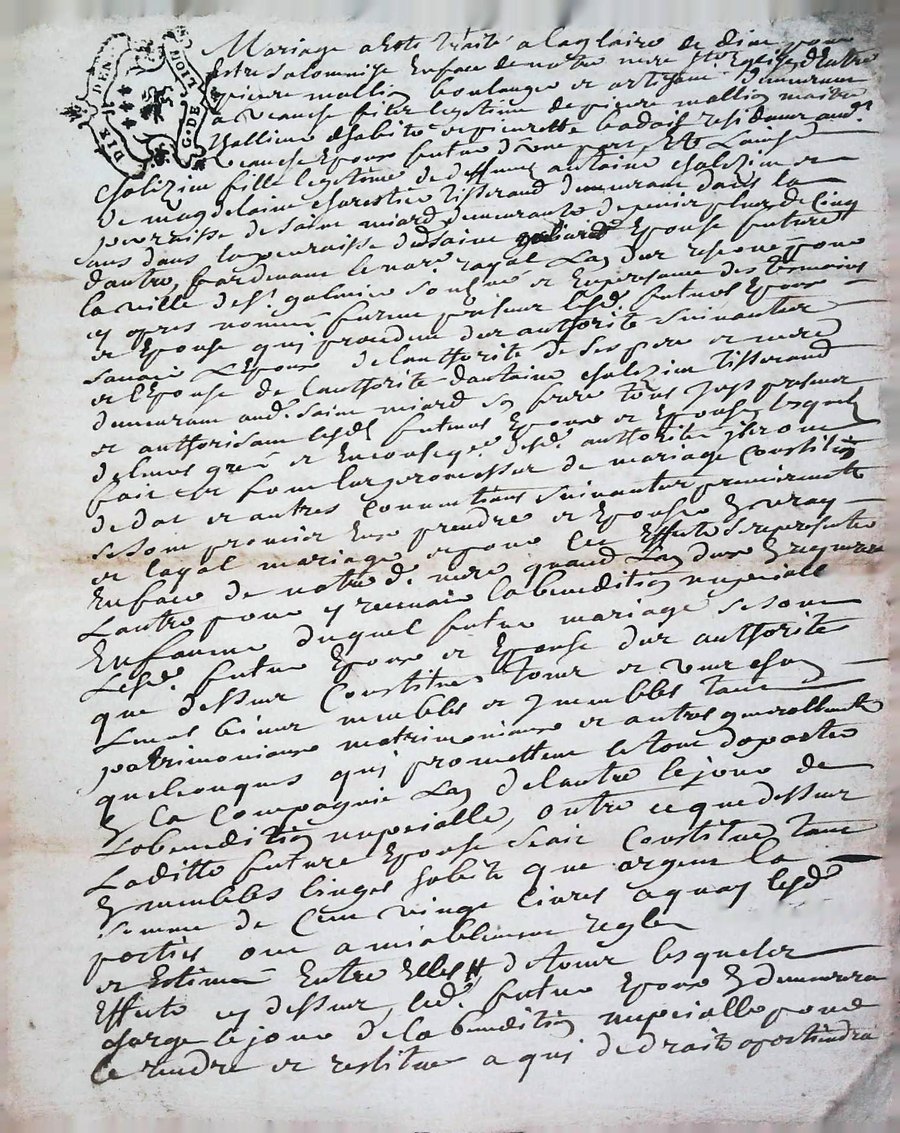 DIX DEN. G. DE LION
Mariage a Este traité a la gloire de dieu pour
Estre Salomnisé En face de notre mere Ste Eglise d'Entre
pierre mallin boulanger et artisan demeurant
a veauche fils legitime de pierre mallin maitre
habitte et pierrette badais residants aud.
veauche Epoux futur d'une part, Et
chalezin fille legitime de deffunt antoine chalezin et
de magdelaine tisserand demeurant dans la
parroisse de Saint miard demeurante depuis plus de Cinq
ans dans la parroisse de Saint Epouse future
d'autre, pardevant le notre royal
la ville de St galmier Soussigné et En presence des temoins
cy apres nommés furent present lesd. futurs Epoux
et Epouse qui procedent des authorités Suivantes
Savoir L'Epoux de l'authorité de Ses pere et mere
et l'Epouse de l'authorité d'antoine chalezin tisserand
demeurant aud. Saint miard Son frere tous Icy present
et authorisant lesd. futurs Epoux et Epouse, lesquels
de leurs gré et En Consequence desd. authorités
fait et font les promesses de mariage Constitution
de dot et autres Conventions Suivantes premierement
Se Sont promis Eux prendre et Epouser En vray
et loyal mariage et pour cet Effet Se representer
En face de notre de. mere quand L'un d'eux En requerera
L'autre pour y recevoir la benediction nuptialle
En faveur duquel futur mariage Se Sont
Lesd. futur Epoux et Epouse des authorités
que dessus Constitués tous et un chacun
Leurs biens meubles et Immeubles tant
patrimoniaux matrimoniaux et autres generallement
quelconques qui promettent le tout d'aporter
En la Compagnie L'un de l'autre le jour de
La benediction nuptialle, outre ce que dessus
Laditte future Epouse S'est Constituée tant
En meubles linges habits que argent la
Somme de Cent vingt livres a quoy lesd.
parties ont amiablement reglé
et Estimé Entre Elles # de tous lesquels
Effets cy dessus, led. futur Epoux En demeurera
chargé le jour de la benediction nuptialle pour
le rendre et restituer a qui de droit apartiendra